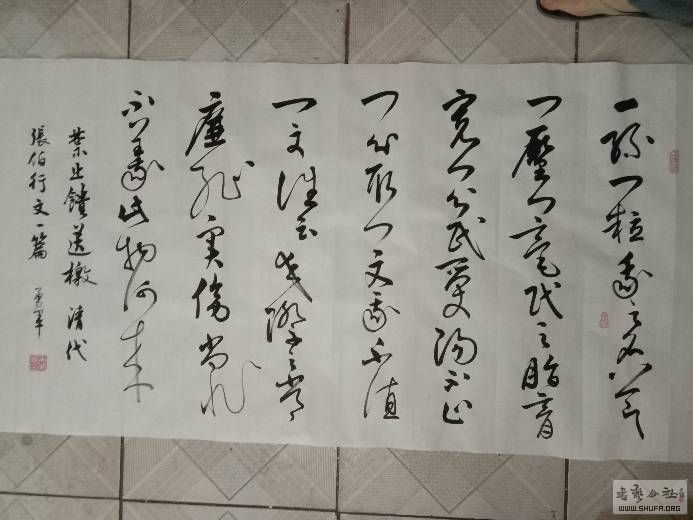 一絲一粒我之名節
一釐一毫民之脂膏
寬一分民受賜不止
一分取一文我不值
一文誰云交際之常
廉恥實傷倘非
不義此物何来
禁止饋送檄 清代
張伯行文一篇
书艺公社
WWW.SHUFA.ORG